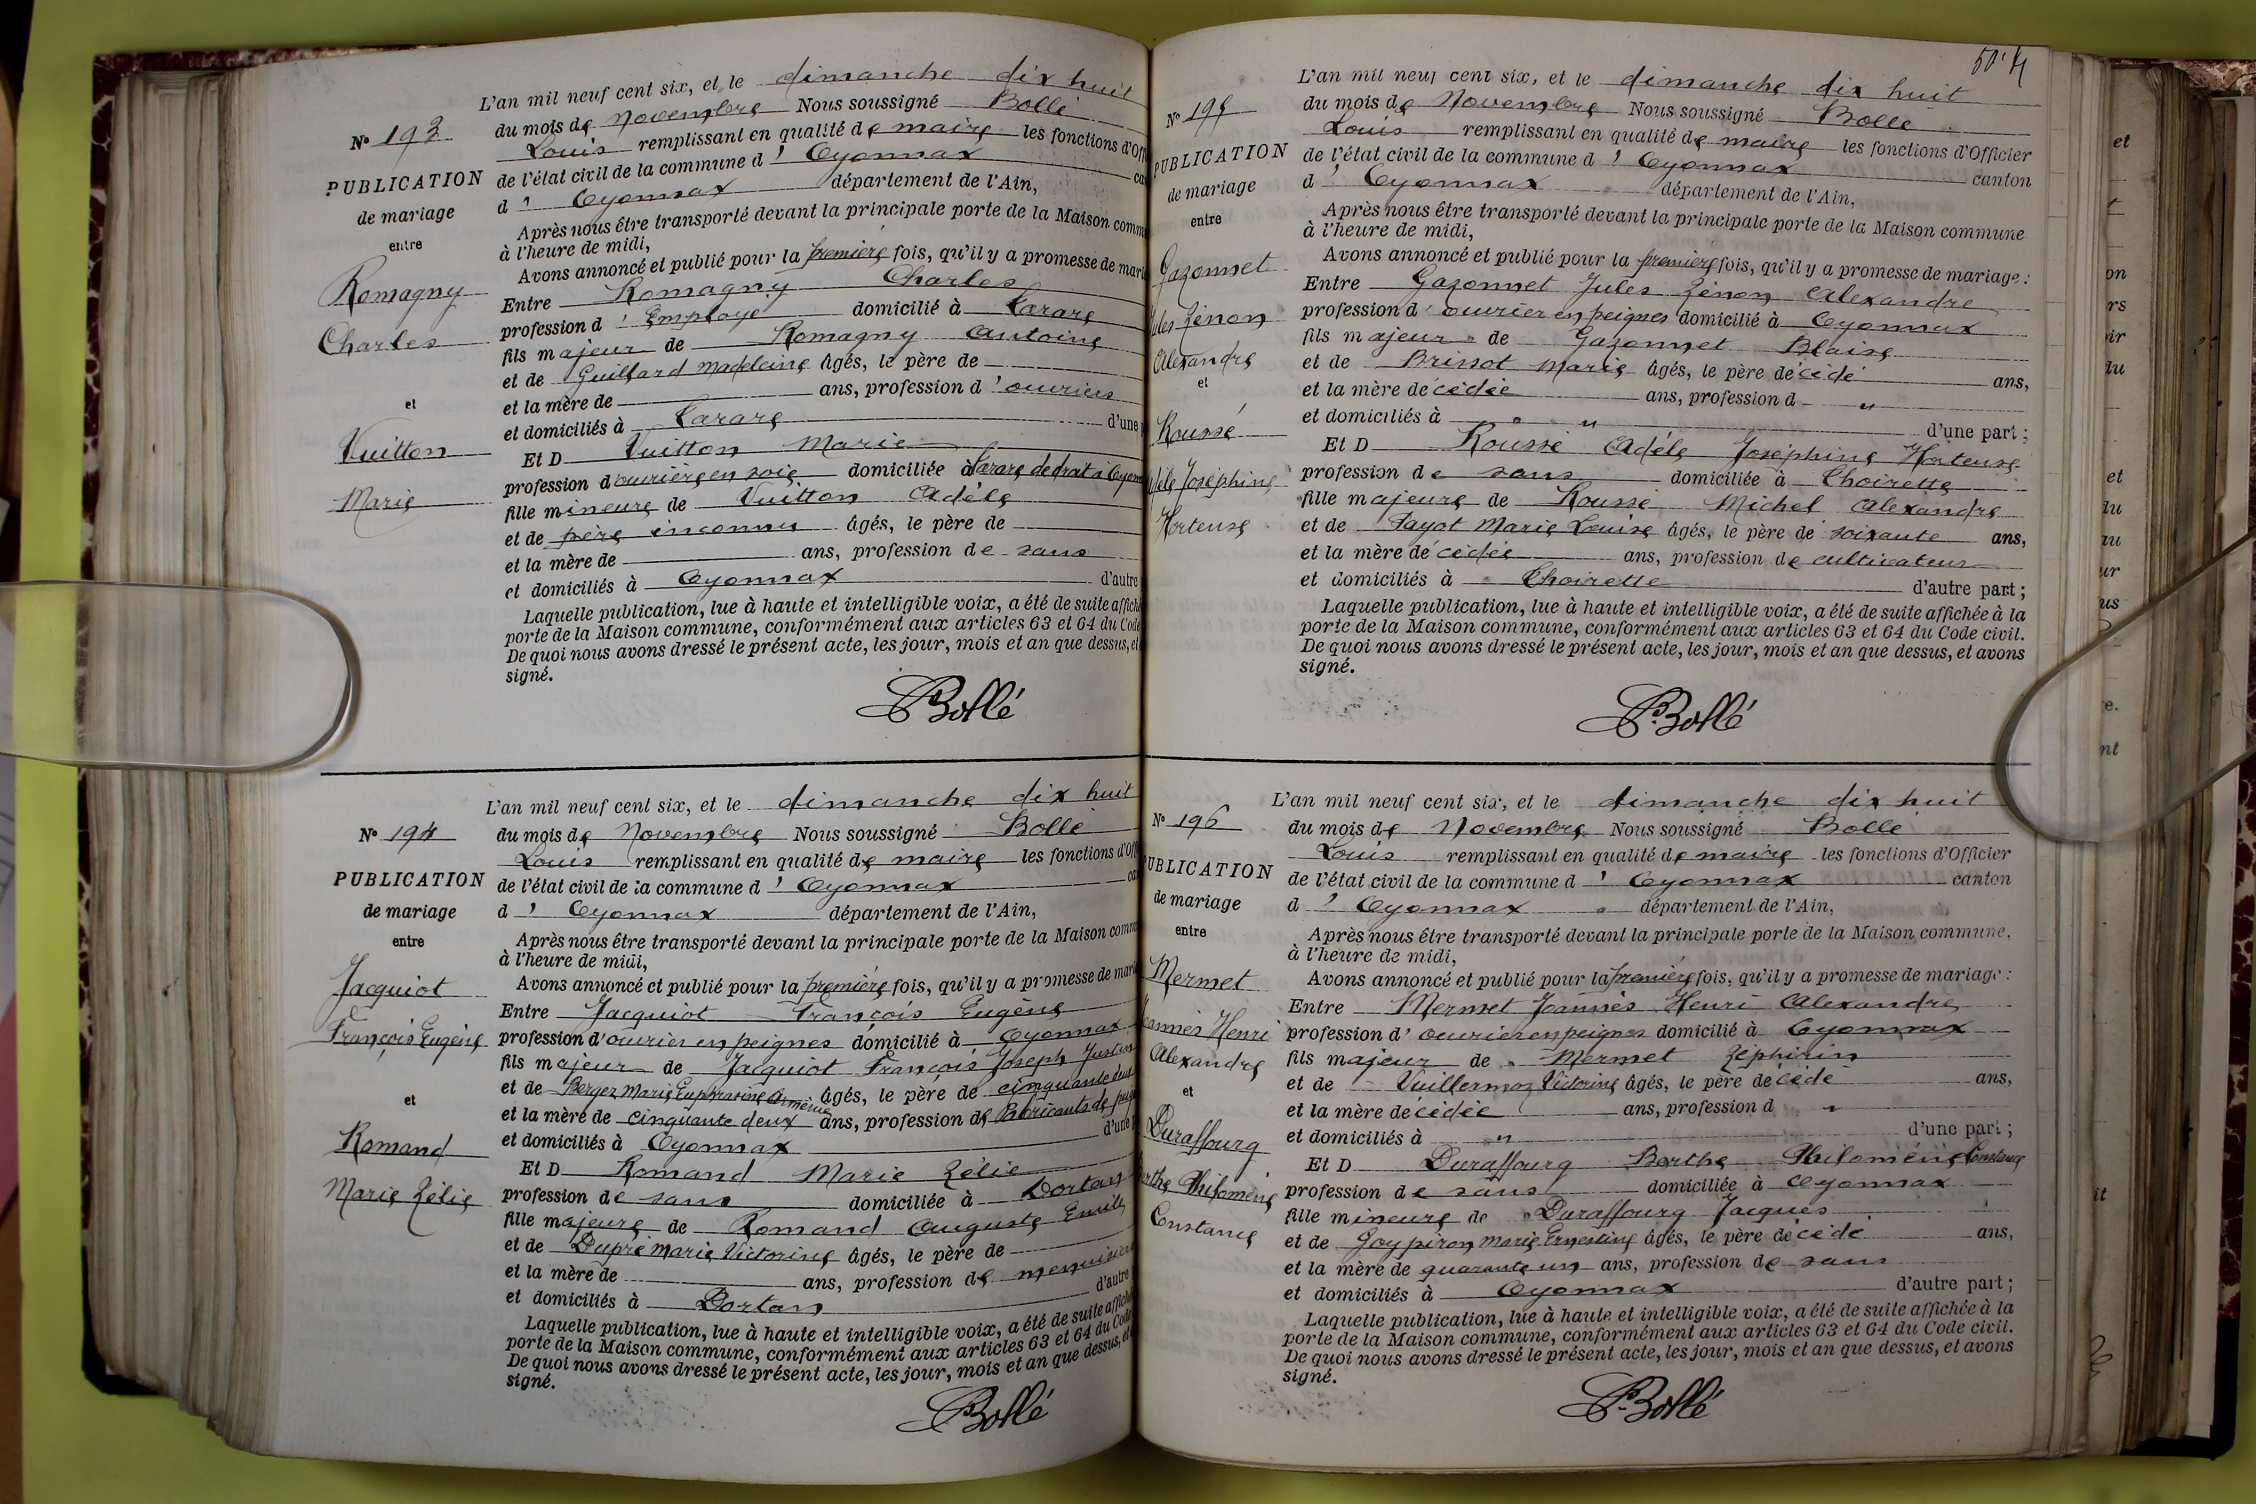 L'an mil neuf cent six, et le dimanche dix huit
du mois de Novembre Nous soussigné Bollé
Louis remplissant en qualité de maire les fonctions d'Off
de l'état civil de la commune d'Oyonnax
d'Oyonnax département de l'Ain,
Après nous être transporté devant la principale porte de la Maison comm
à l'heure de midi,
Avons annoncé et publié pour la première fois, qu'il y a promesse de mari
Entre Romagny Charles
profession d'Employé domicilié à Tarare
fils majeur de Romagny Antoine
et de Guillard Madeleine âgés, le père de
et la mère de ans, profession d'ouvriers
et domiciliés à Tarare d'une
Et D Vuitton Marie
profession d'ouvrière en soie domiciliée à Tarare de droit à Oyonn
fille mineure de Vuitton Adèle
et de père inconnu âgés, le père de
et la mère de ans, profession de sans
et domiciliés à Oyonnax d'autre
Laquelle publication, lue à haute et intelligible voix, a été de suite affiché
porte de la Maison commune, conformément aux articles 63 et 64 du Code
De quoi nous avons dressé le présent acte, les jour, mois et an que dessus, et
signé.
Bollé
N° 193
PUBLICATION
de mariage
entre
Romagny
Charles
et
Vuitton
Marie
L'an mil neuf cent six, et le dimanche dix huit
du mois de Novembre Nous soussigné Bollé
Louis remplissant en qualité de maire les fonctions d'Off
de l'état civil de la commune d'Oyonnax
d'Oyonnax département de l'Ain,
Après nous être transporté devant la principale porte de la Maison comm
à l'heure de midi,
Avons annoncé et publié pour la première fois, qu'il y a promesse de mari
Entre Jacquiot François Eugène
profession d'ouvrier en peignes domicilié à Oyonnax
fils majeur de Jacquiot François Joseph Justin
et de Berger Marie Euphrasine Arménie âgés, le père de cinquante
et la mère de cinquante deux ans, profession de Fabricants de
et domiciliés à Oyonnax d'une
Et D Romand Marie Zélie
profession de sans domiciliée à Dortan
fille majeure de Romand Auguste Emile
et de Dupré Marie Victorine âgés, le père de
et la mère de ans, profession de menuisier
et domiciliés à Dortan d'autre
Laquelle publication, lue à haute et intelligible voix, a été de suite affiché
porte de la Maison commune, conformément aux articles 63 et 64 du Code
De quoi nous avons dressé le présent acte, les jour, mois et an que dessus, et
signé.
Bollé
N° 194
PUBLICATION
de mariage
entre
Jacquiot
François Eugène
et
Romand
Marie Zélie
L'an mil neuf cent six, et le dimanche dix huit
du mois de Novembre Nous soussigné Bollé
Louis remplissant en qualité de maire les fonctions d'Officier
de l'état civil de la commune d'Oyonnax canton
d'Oyonnax département de l'Ain,
Après nous être transporté devant la principale porte de la Maison commune
à l'heure de midi,
Avons annoncé et publié pour la première fois, qu'il y a promesse de mariage :
Entre Gazonnet Jules Zénon Alexandre
profession d'ouvrier en peignes domicilié à Oyonnax
fils majeur de Gazonnet Blaise
et de Brissot Marie âgés, le père décédé ans,
et la mère décédée ans, profession d "
et domiciliés à " d'une part ;
Et D Roussé Adèle Joséphine Hortense
profession de sans domiciliée à Choirette
fille majeure de Roussé Michel Alexandre
et de Payot Marie Louise âgés, le père de soixante ans,
et la mère décédée ans, profession de cultivateur
et domiciliés à Choirette d'autre part ;
Laquelle publication, lue à haute et intelligible voix, a été de suite affichée à la
porte de la Maison commune, conformément aux articles 63 et 64 du Code civil.
De quoi nous avons dressé le présent acte, les jour, mois et an que dessus, et avons
signé.
Bollé
N° 195
PUBLICATION
de mariage
entre
Gazonnet
Jules Zénon
Alexandre
et
Roussé
Adèle Joséphine
Hortense
L'an mil neuf cent six, et le dimanche dix huit
du mois de Novembre Nous soussigné Bollé
Louis remplissant en qualité de maire les fonctions d'Officier
de l'état civil de la commune d'Oyonnax canton
d'Oyonnax département de l'Ain,
Après nous être transporté devant la principale porte de la Maison commune,
à l'heure de midi,
Avons annoncé et publié pour la première fois, qu'il y a promesse de mariage :
Entre Mermet Joannès Henri Alexandre
profession d'ouvrier en peignes domicilié à Oyonnax
fils majeur de Mermet Zéphirin
et de Vuillermoz Victorine âgés, le père décédé ans,
et la mère décédée ans, profession d "
et domiciliés à " d'une part ;
Et D Duraffourg Berthe Philomène Constance
profession de sans domiciliée à Oyonnax
fille mineure de Duraffourg Jacques
et de Goypiron Marie Ernestine âgés, le père décédé ans,
et la mère de quarante un ans, profession de sans
et domiciliés à Oyonnax d'autre part ;
Laquelle publication, lue à haute et intelligible voix, a été de suite affichée à la
porte de la Maison commune, conformément aux articles 63 et 64 du Code civil.
De quoi nous avons dressé le présent acte, les jour, mois et an que dessus, et avons
signé.
Bollé
N° 196
PUBLICATION
de mariage
entre
Mermet
Joannès Henri
Alexandre
et
Duraffourg
Berthe Philomène
Constance